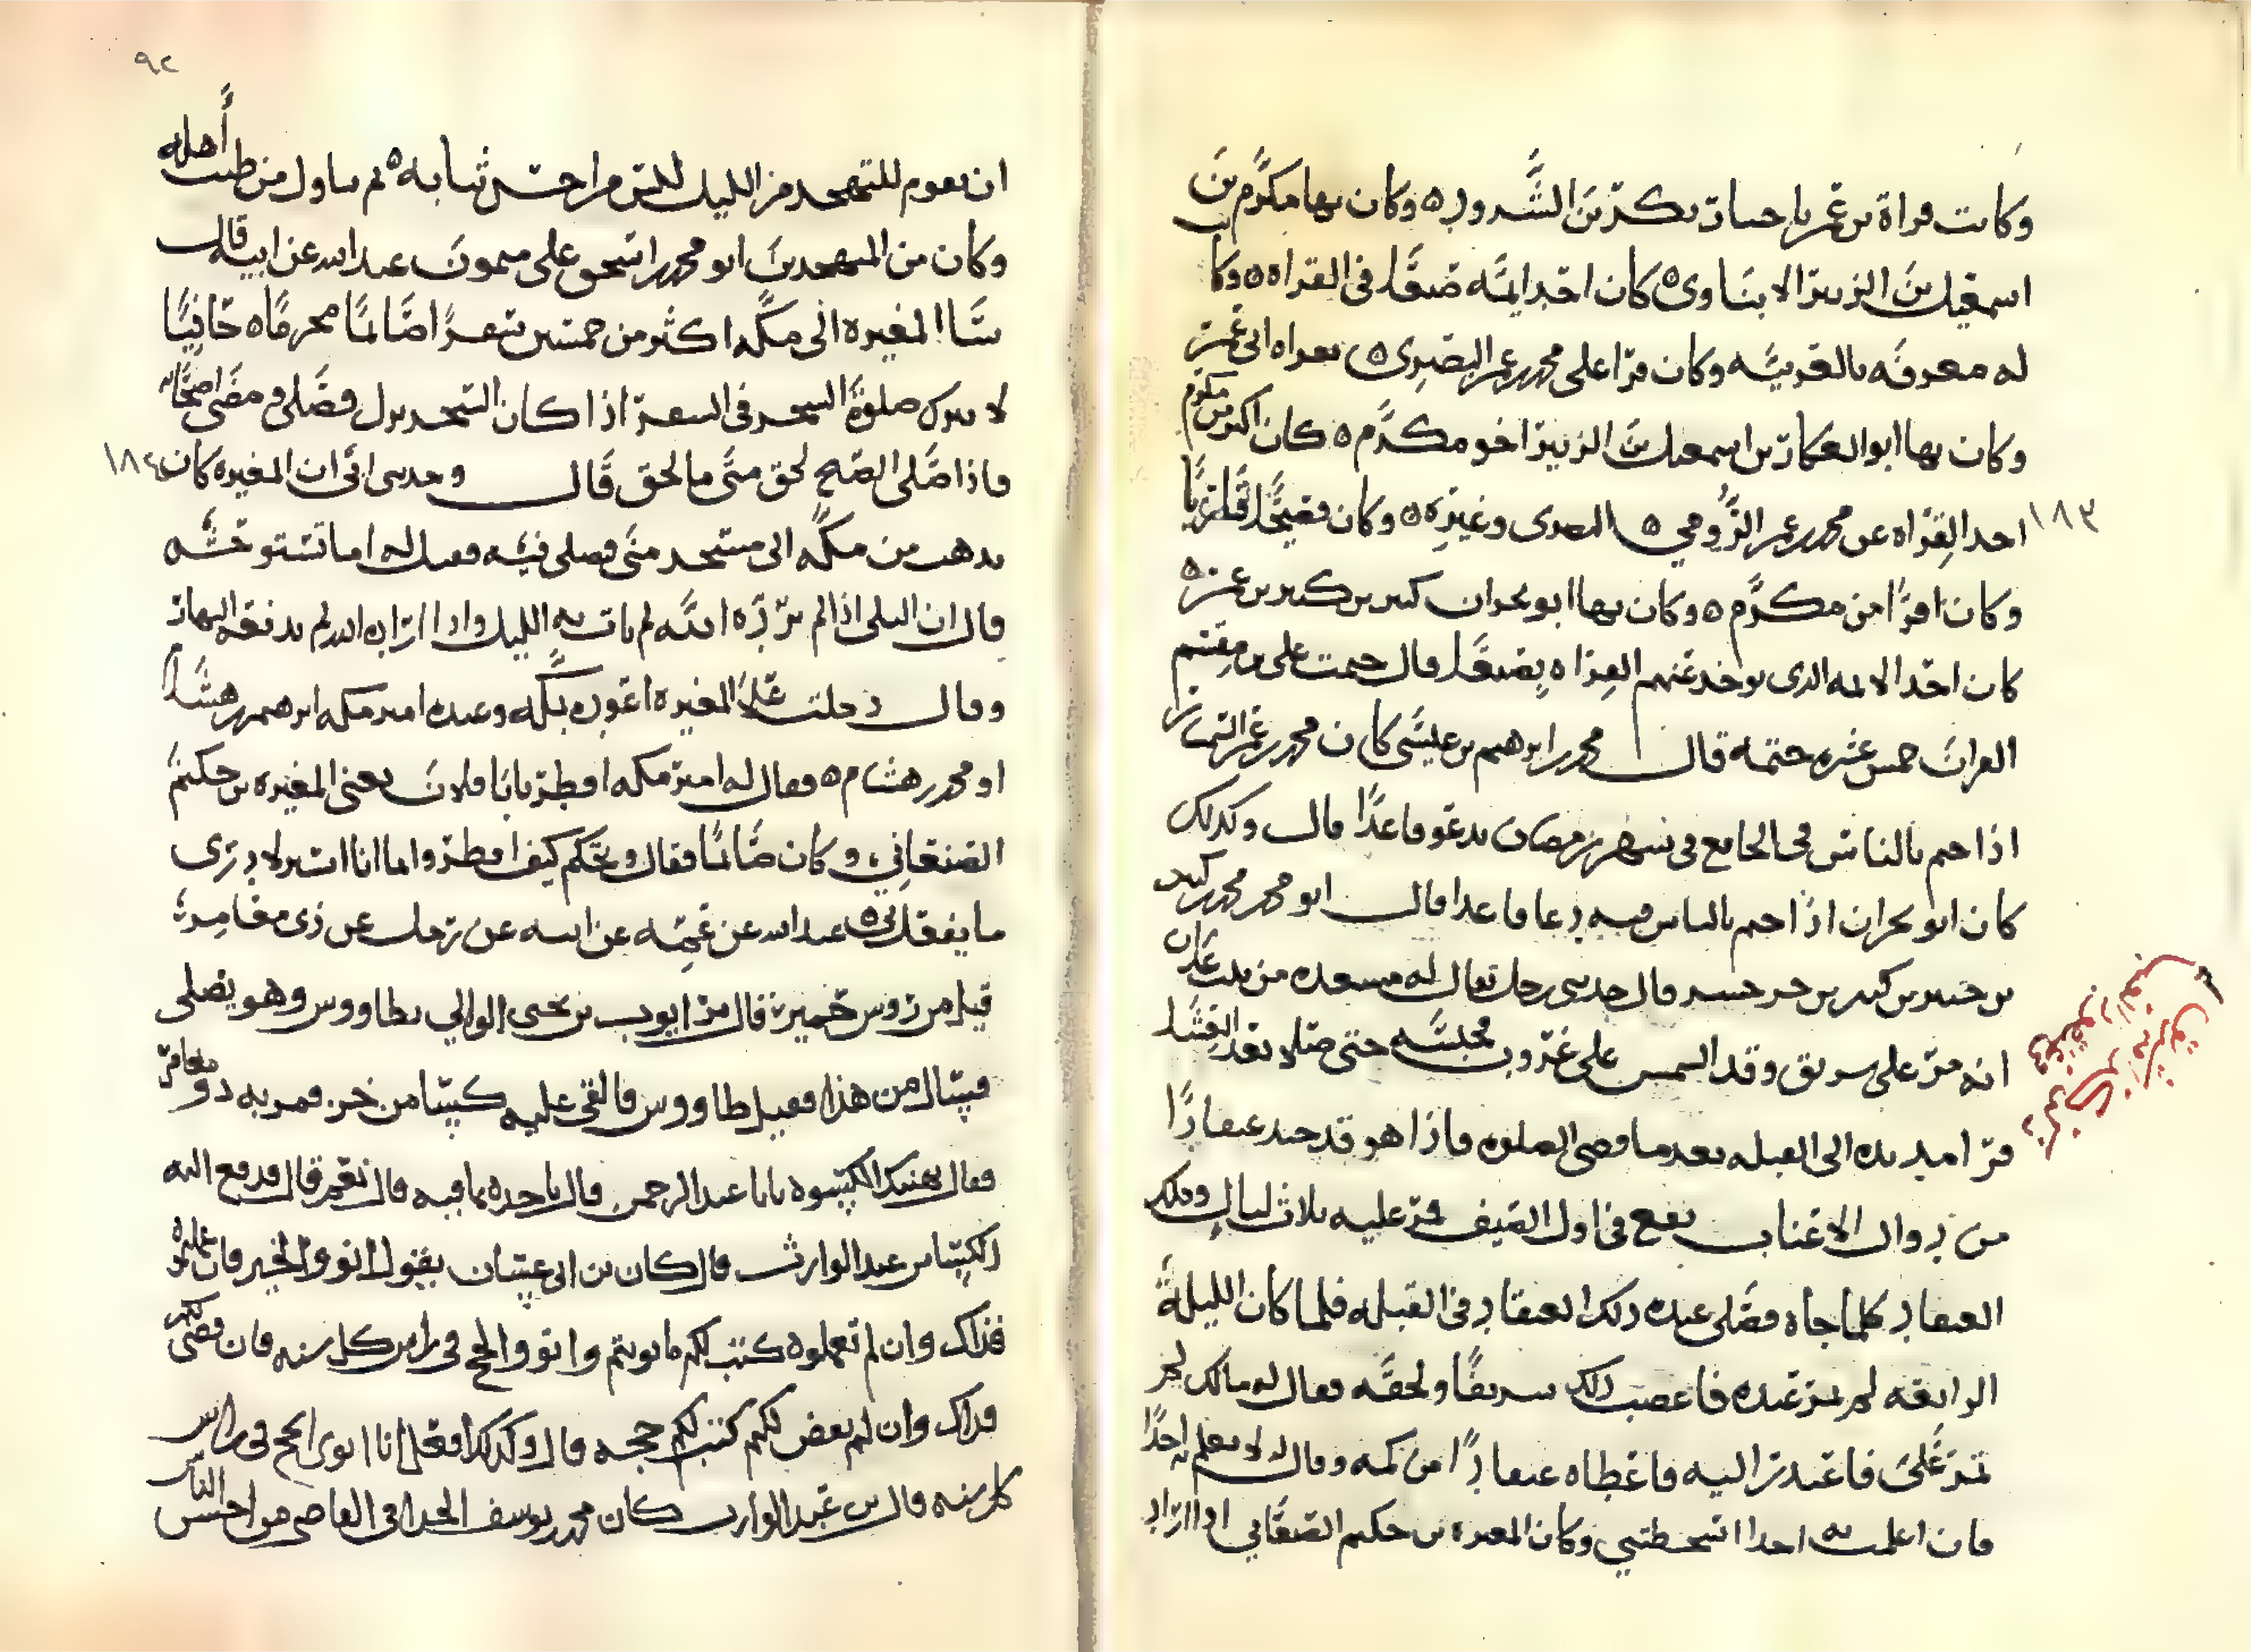 وكانت قراة بن عمر باختيار بكر بن الشرود ٥ وكان بها مكرم بن
اسمعيل بن الزبير الابناوي ٥ كان احد ايمه صنعا في القراه ٥ وكانت
له معرفه بالعربيه وكان قرا على محمد بن عمر البصري ٥ بقراه ابي عمر
وكان بها ابو العكار بن اسمعيل بن الزبير اخو مكرم ٥ كان اكبر من مكرم
١٨٣
اخذ القراه عن محمد بن عمر الرومي ٥ البصري وغيره ٥ وكان فصيحا قاريا
وكان اقرا من مكرم ٥ وكان بها ابو بحران كثير بن كثير بن عنز ٥
كان احد الايمه الذي يوخذ عنهم القراه بصنعا قال ختمت على بن مقسم
القران خمس عشره ختمه قال محمد بن ابرهيم بن عيسى كان محمد بن عمر السمسار
اذا ختم بالناس في الجامع في شهر رمضان يدعو قاعدا قال وكذلك
كان ابو بحران اذا ختم بالناس فيه دعا قاعدا قال ابو محمد محمد كثير
بن كثير بن قال حدثني رجل يقال له مسعده من بيت عذران
انه مر على سريق وقد الشمس على غروب مجلسه حتى صلا بعد العشا
قرا مد يده الى القبله بعد ما قضى الصلوه فاذا هو قد عنقادا
من دوال الاعناب يقع في اول الصيف فمر عليه ثلاث ليال وملك
العنقاد كلما جاه فصلى عنده ذلك العنقاد في القبله فلما كان الليلة
الرابعه لم يمر عنده فاغضب ذلك سريقا ولحقه فقال له مالك لم
تمر علي فاعتذر اليه فاعطاه عنقادا من كمه وقال له لا تعلم به احدا
فان اعلمت به احدا اسخطتني وكان المغيره بن حكيم الصنعاني اذا اراد
٩٢
ان يقوم للتهجد من الليل لبس من احسن ثيابه ٥ ثم تناول من طيب أهله
وكان من المتهجدين ابو محمد اسحق على ميمون عبد الله عن ابيه قال
سا المغيره الى مكه اكثر من خمسين سفرا صائما محرما ٥ حافيا
لا يترك صلوة السحر في السفر اذا كان السحر نزل فصلى ومضى اصحابه
فاذا صلى الصبح لحق متى ما لحق قال وحدثني ابي ان المغيره كان
١٨٤
يذهب من مكه الى مسجد منى فيصلي فيه فقيل له اما تستوحشه
قال ان البلى اذا لم يرده الله لم يات به الليل واذا اراده الله لم يدفعه النهار
وقال دخلت على المغيره اعوده بمكه وعنده امير مكه ابرهيم بن هشام
او محمد بن هشام ٥ فقال له امير مكه افطر يابا فلان يعني المغيره بن حكيم
الصنعاني وكان صائما فقال ويحكم كيف افطر واما انا انت لا تدري
ما يفعل بي ٥ عبد الله عن عمه عن ابيه عن رجل عن ذي مغامر
قيل من روس حمير قال مر ايوب بن يحيى الوالي بطاووس وهو يصلي
فسال من هذا فقيل طاووس فالقى عليه كيسا من خز فمر به ذو مغامر
فقال يهنيك الكسوه يابا عبد الرحمن قال تاخذه بما فيه قال نعم قال فدفع اليه
الكيسا بن عبد الوارث قال كان بن ابي عسان يقول انووا الخير فان عملتموه
فذاك وان لم تعملوه كتب لكم ما نويتم وانووا الحج في راس كل سنه فان قضى لكم
فذاك وان لم يقض لكم كتب لكم حجه قال وكذلك افعل انا انوي الحج في راس
كل سنه قال بن عبد الوارث كان محمد بن يوسف الحذاقي القاضي من احسن الناس